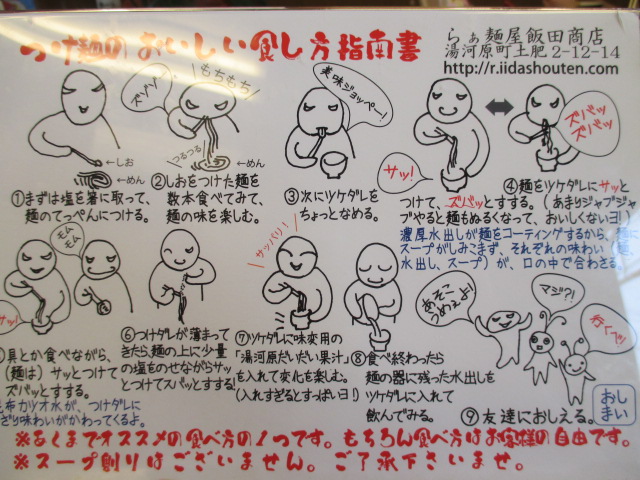 つけ麺のおいしい食し方指南書
らぁ麺屋飯田商店
湯河原町土肥2-12-14
http://r.iidashouten.com
ズゾゾー
もちもち
つるつる
美味ジョッペー!
ズバッッ
ズバッッ
サッ!
←しお
←めん
←めん
①まずは塩を箸に取って、
麺のてっぺんにつける。
②しおをつけた麺を
数本食べてみて、
麺の味を楽しむ。
③次にツケダレを
ちょっとなめる。
④麺をツケダレにサッと
つけて、ズバッとすする。(あまりジャブジャブ
やると麺もぬるくなって、おいしくないヨ!)
濃厚水出しが麺をコーティングするから、麺に
スープがしみこまず、それぞれの味わい(麺、
水出し、スープ)が、口の中で合わさる。
モムモム
サッ!
具とか食べながら、
(麺は)サッとつけて
ズバッとすする。
布カツオ水が、つけダレに
ざり味わいがかわってくるよ。
⑥つけダレが薄まって
きたら、麺の上に少量
の塩をのせながらサッ
とつけてズバッとすする!
サッパリ!
⑦ツケダレに味変用の
「湯河原だいだい果汁」
を入れて変化を楽しむ。
(入れすぎるとすっぱいヨ!)
⑧食べ終わったら
麺の器に残った水出しを
ツケダレに入れて
飲んでみる。
あそこ
うめえよ!
マジ?!
行くべッ
⑨友達におしえる。
おしまい
※あくまでオススメの食べ方の1つです。もちろん食べ方はお客様の自由です。
※スープ割りはございません。ご了承下さいませ。